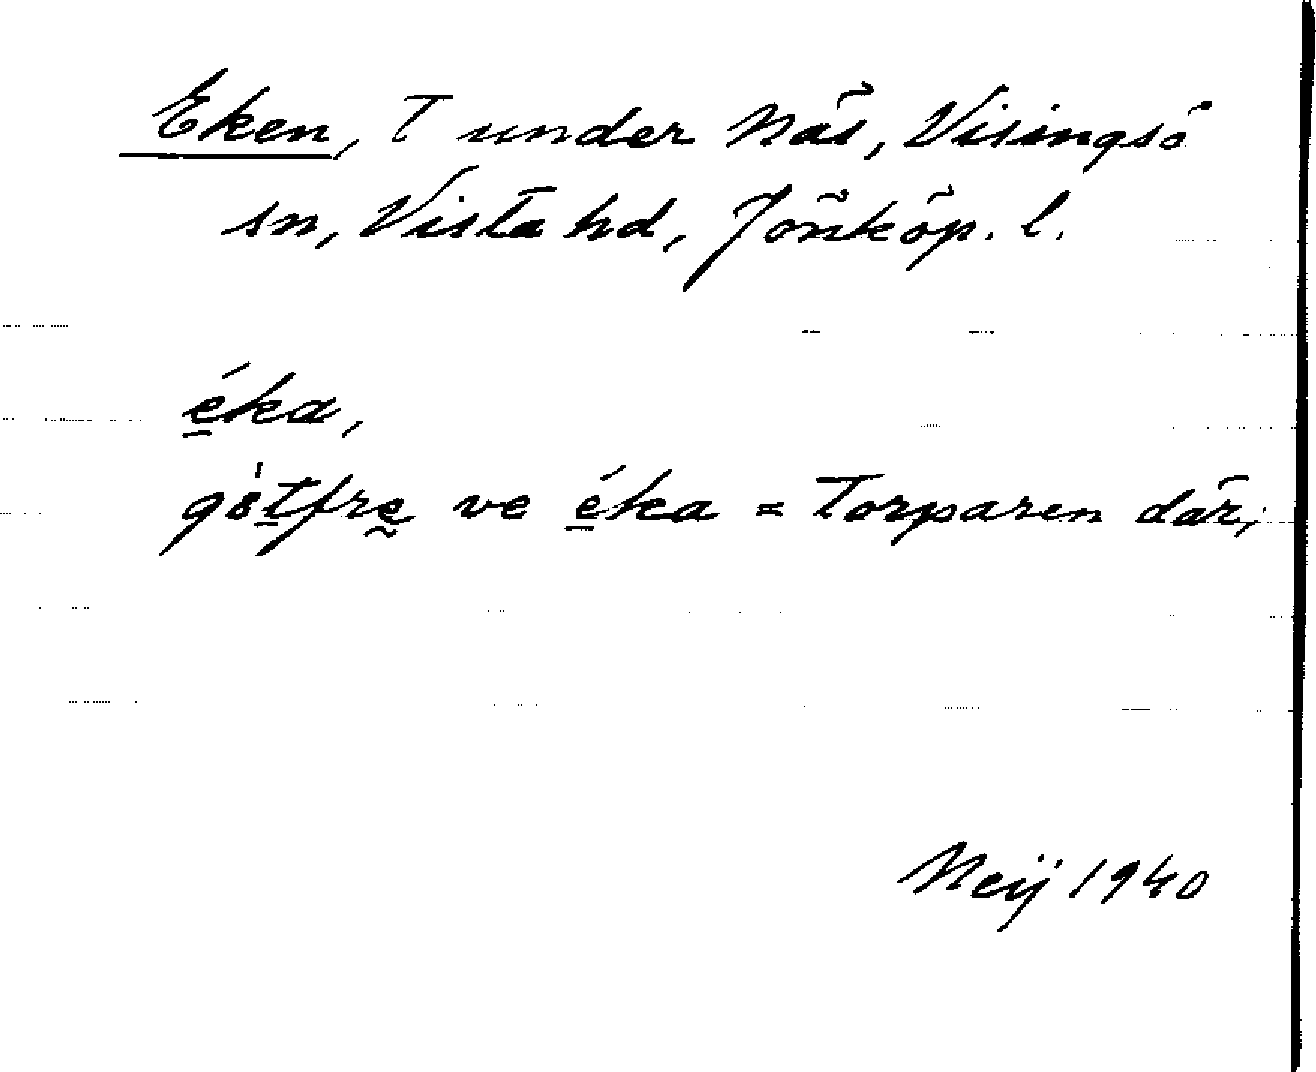 Eken, T under Näs, Visingsö
sn, Vista hd, Jönköp. l.
é̱ka,
gö́ṯfrḛ ve é̱ka = Torparen där,
Neij 1940